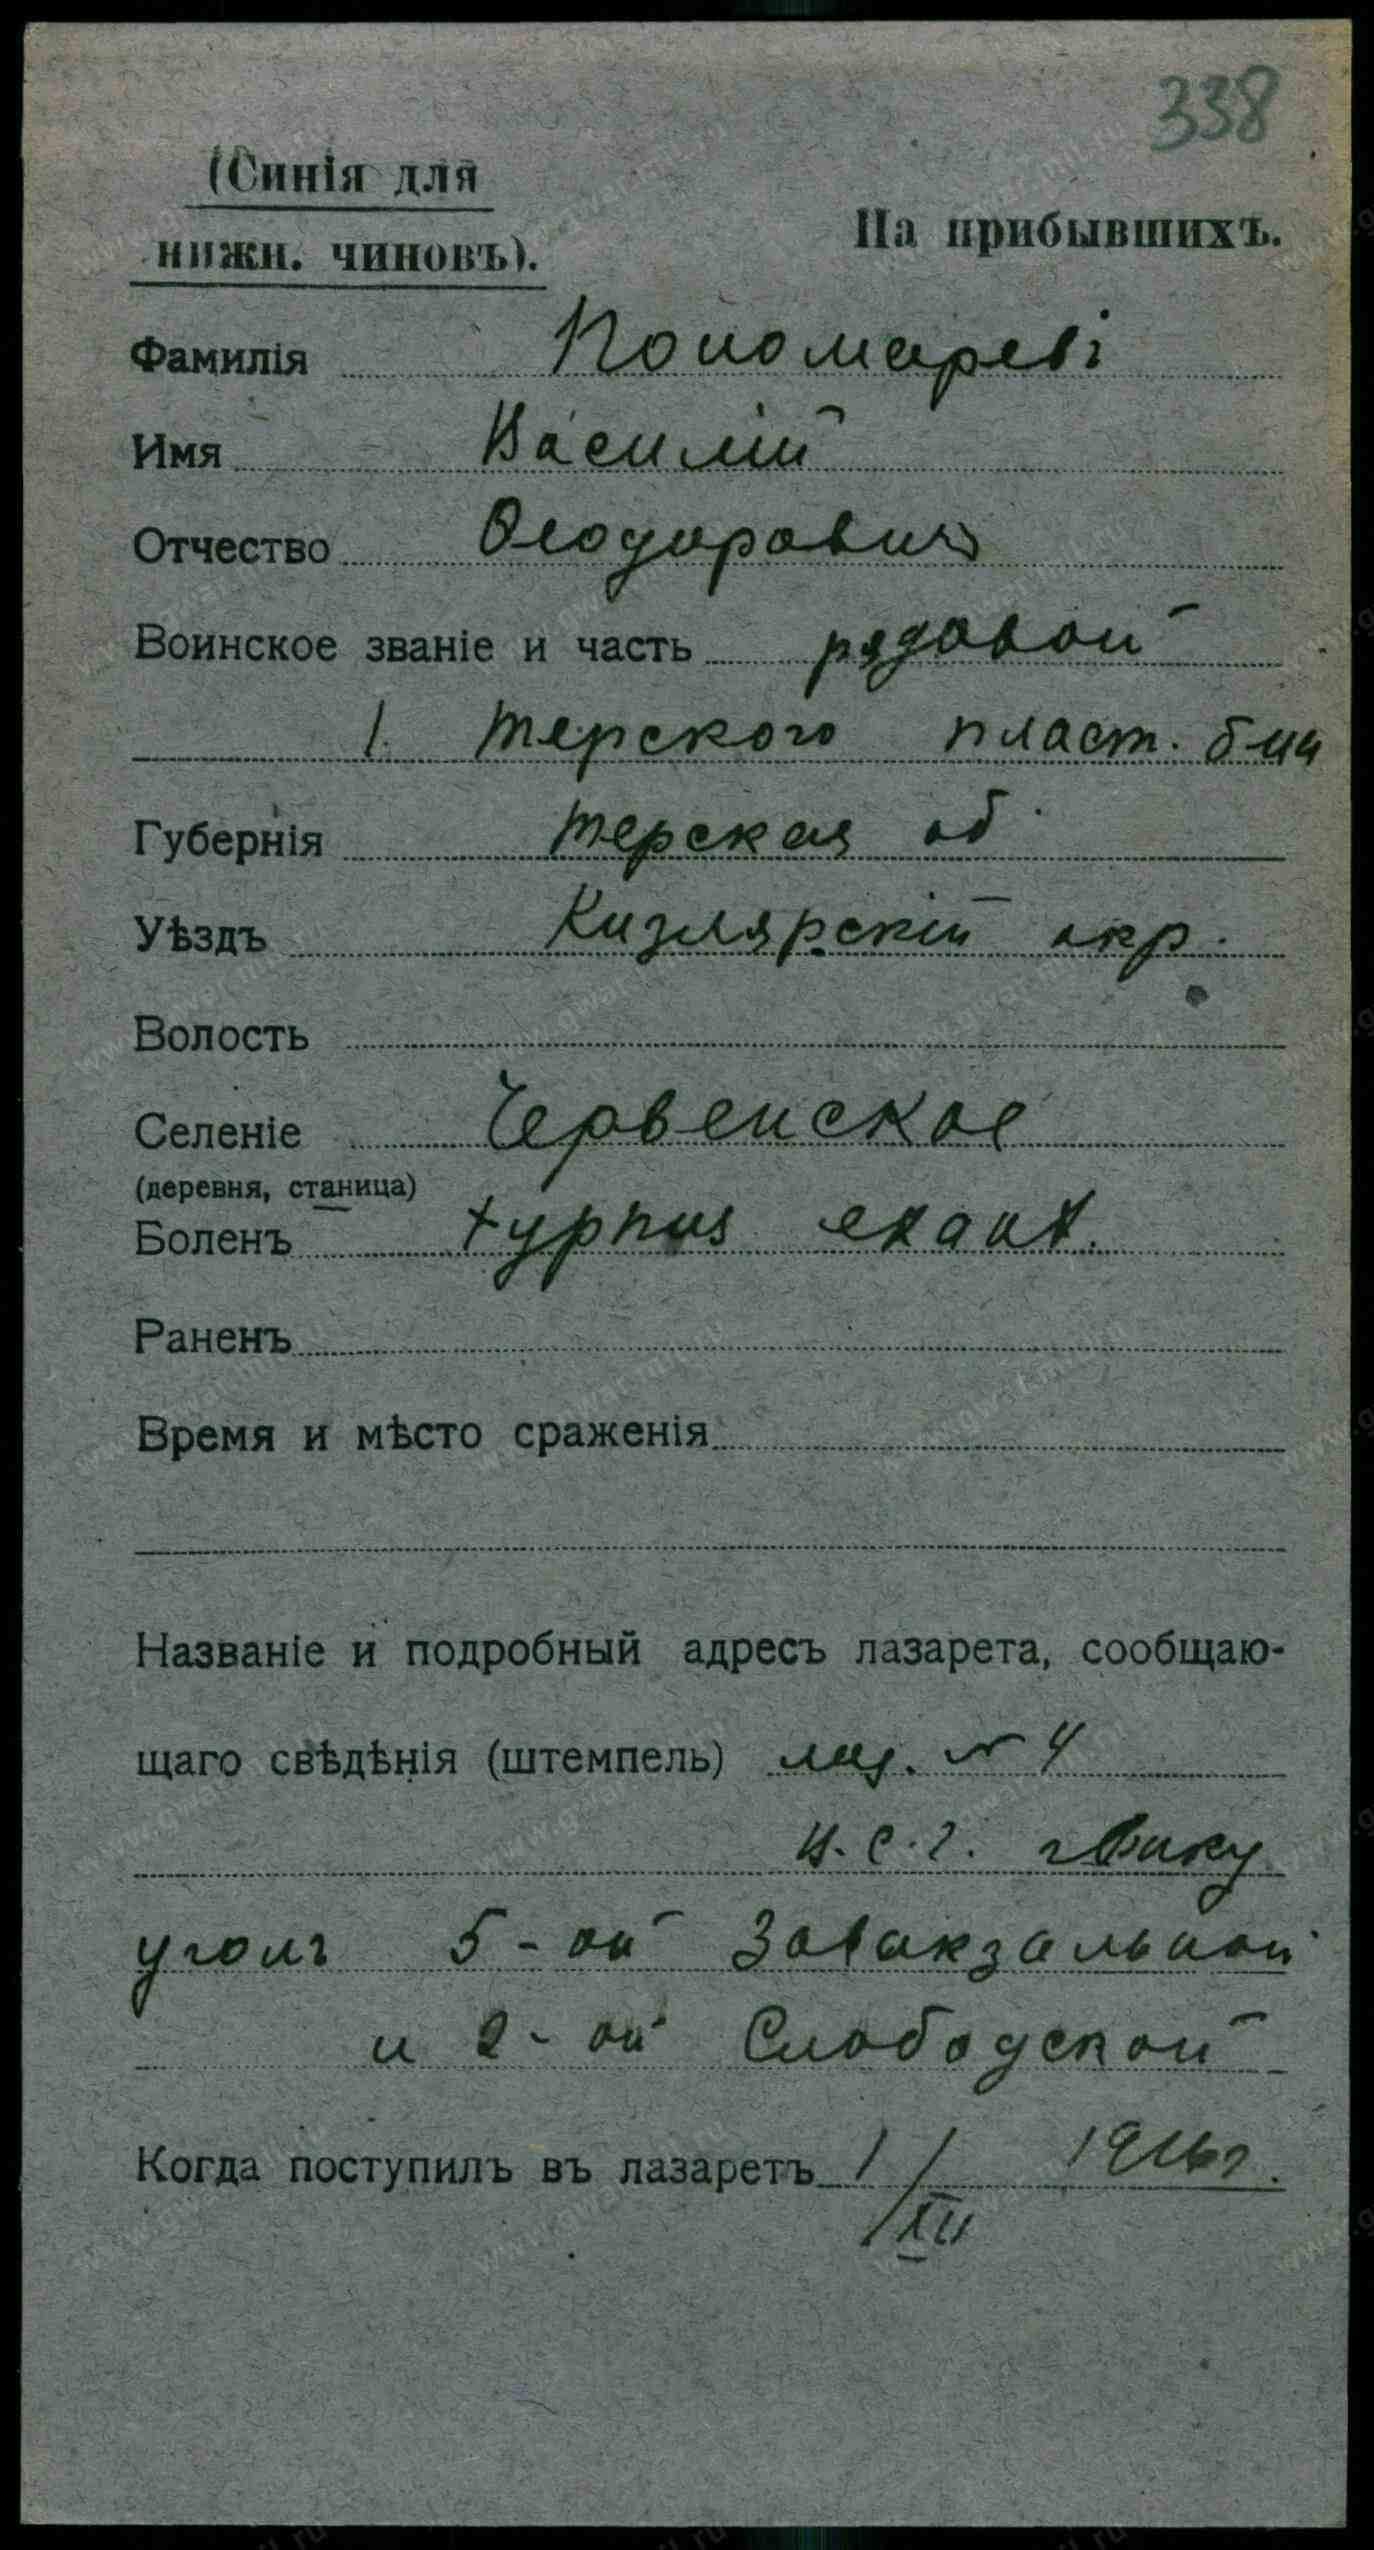 338
(Синія для
нижн. чиновъ).
На прибывшихъ.
Фамилія Пономаревъ
Имя Василій
Отчество Феодоровичъ
Воинское званіе и часть рядовой
1. Терского пласт. б-на
Губернія Терская об.
Уѣздъ Кизлярскій окр.
Волость
Селеніе Червенское
(деревня, станица)
Боленъ typhus exant.
Раненъ
Время и мѣсто сраженія
Названіе и подробный адресъ лазарета, сообщаю-
щаго свѣдѣнія (штемпель) лаз. № 4
в.с.г. г Баку
уголъ 5-ой Завокзальной
и 2-ой Слободской
Когда поступилъ въ лазаретъ 1/XII 1916 г.